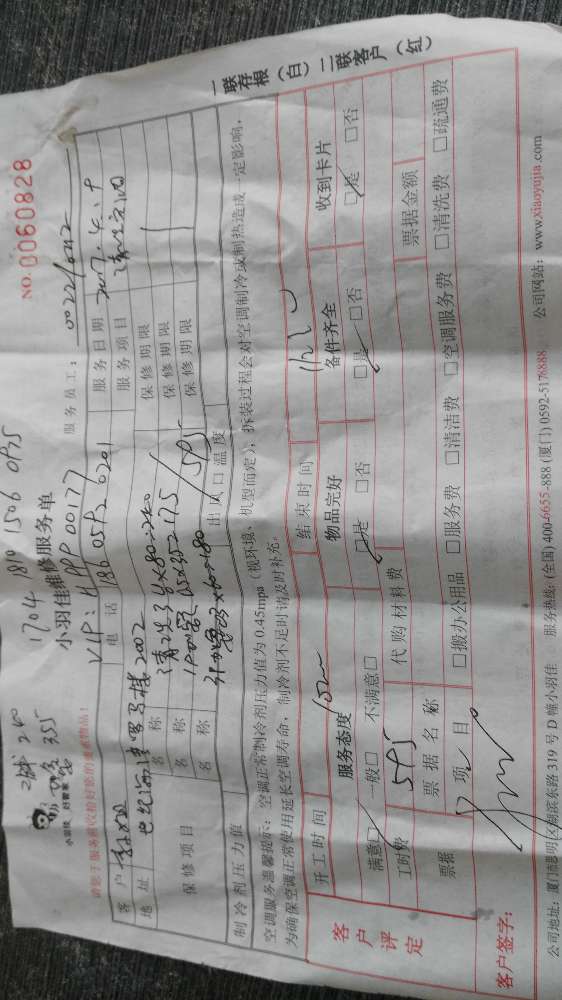 一联存根（白）二联客户（红）
NO. 0060828
1704 1810 1506 0795
小羽佳维修服务单
小羽佳 好管家
服务员工：
VIP: 00177
请您于服务前收检好您的贵重物品！
客户
电话 186 0592 0201
服务日期 2017.4.9
地址 2002
服务项目 清洗空调
保修项目
名称
保修期限
名称
保修期限
名称
保修期限
制冷剂压力值
出风口温度
595
空调服务温馨提示：空调正常制冷剂压力值为 0.45mpa（视环境、机型而定），拆装过程会对空调制冷或制热造成一定影响，
为确保空调正常使用延长空调寿命，制冷剂不足时请及时补充。
客户评定
开工时间
结束时间
服务态度
物品完好
备件齐全
收到卡片
满意□ 一般□ 不满意□
□是 □否
□是 □否
□是 □否
工时费 595
代购材料费
票据
票据名称
票据金额
项目
□搬办公用品 □服务费 □清洁费 □空调服务费 □清洗费 □疏通费
客户签字：
公司地址：厦门市思明区湖滨东路 319 号 D 幢小羽佳 服务热线：(全国) 400-6655-888 (厦门) 0592-5176888 公司网站：www.xiaoyujia.com